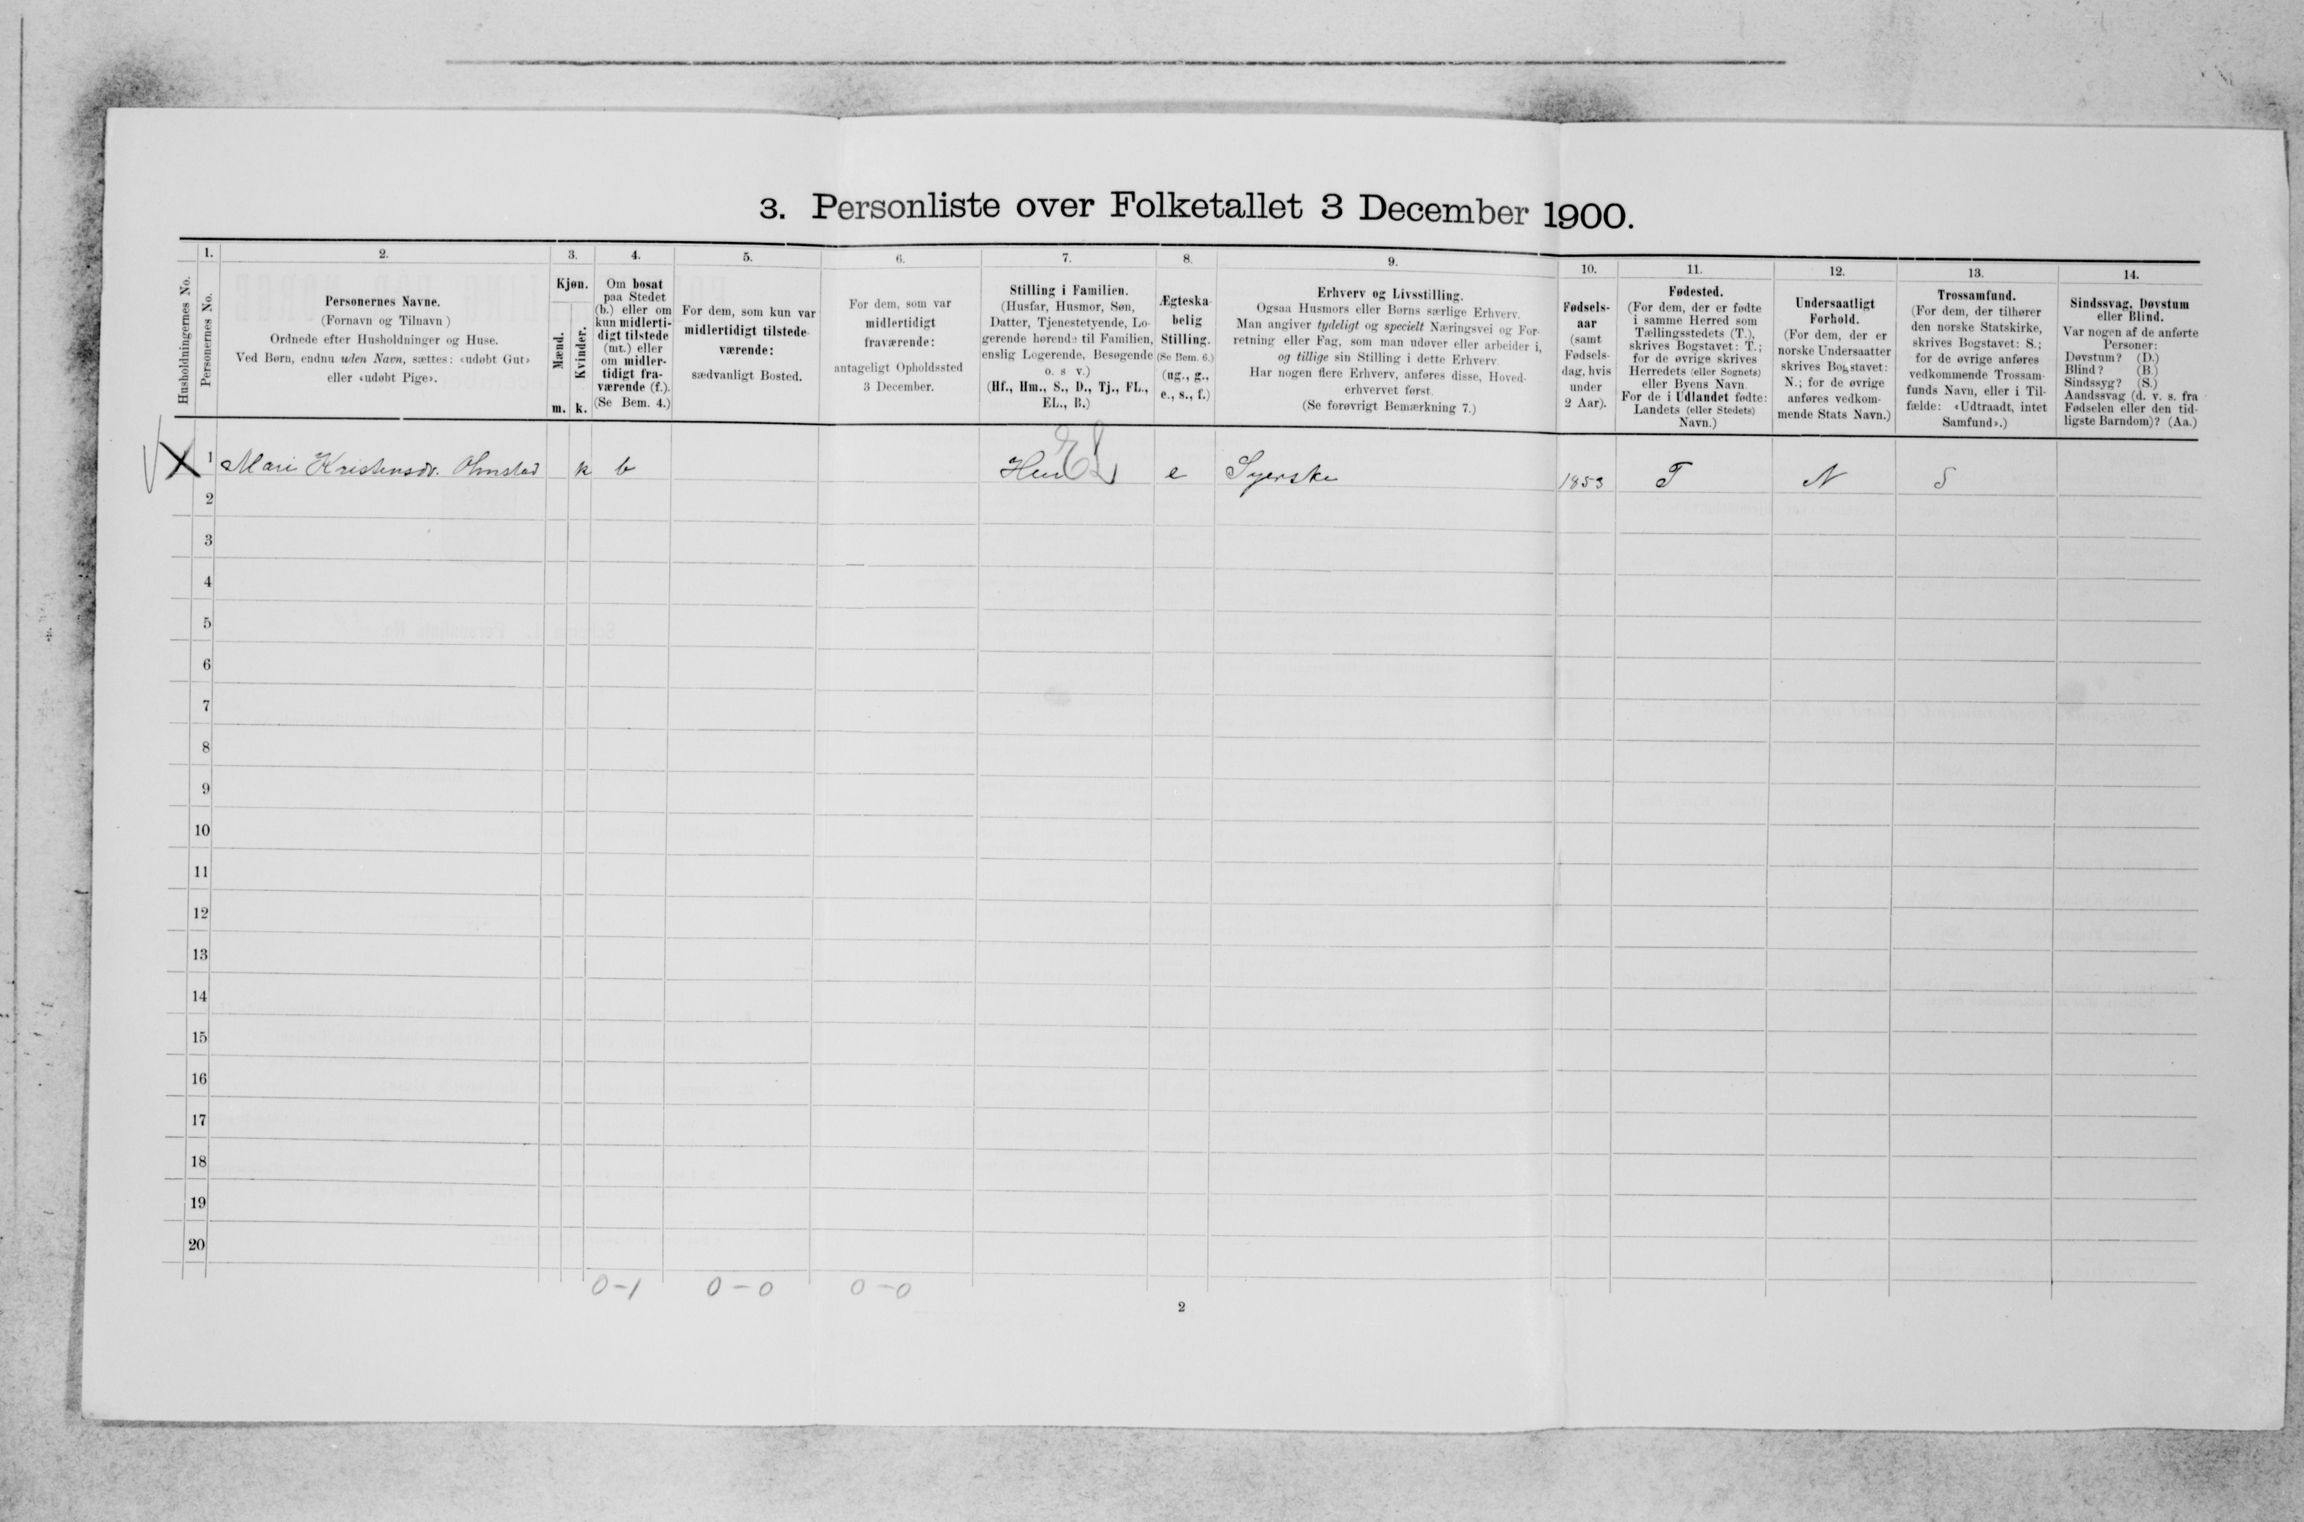 3. Personliste over Folketallet 3 December 1900.
Husholdningernes No.
1.
Personernes No.
2.
Personernes Navne.
(Fornavn og Tilnavn)
Ordnede efter Husholdninger og Huse.
Ved Børn, endnu uden Navn, sættes: «udøbt Gut»
eller «udøbt Pige».
3.
Kjøn.
Mænd.
m.
Kvinder.
k.
4.
Om bosat
paa Stedet
(b.) eller om
kun midlerti-
digt tilstede
(mt.) eller
om midler-
tidigt fra-
værende (f.).
(Se Bem. 4.)
5.
For dem, som kun var
midlertidigt tilstede-
værende:
sædvanligt Bosted.
6.
For dem, som var
midlertidigt
fraværende:
antageligt Opholdssted
3 December.
7.
Stilling i Familien.
(Husfar, Husmor, Søn,
Datter, Tjenestetyende, Lo-
gerende hørende til Familien,
enslig Logerende, Besøgende
o. s v.)
(Hf., Hm., S., D., Tj., FL.,
EL., B.)
8.
Ægteska-
belig
Stilling.
(Se Bem. 6.)
(ug., g.,
e., s., f.)
9.
Erhverv og Livsstilling.
Ogsaa Husmors eller Børns særlige Erhverv.
Man angiver tydeligt og specielt Næringsvei og For-
retning eller Fag, som man udøver eller arbeider i,
og tillige sin Stilling i dette Erhverv.
Har nogen flere Erhverv, anføres disse, Hoved-
erhvervet først.
(Se forøvrigt Bemærkning 7.)
10.
Fødsels-
aar
(samt
Fødsels-
dag, hvis
under
2 Aar).
11.
Fødested.
(For dem, der er fødte
i samme Herred som
Tællingsstedets (T.),
skrives Bogstavet: T.;
for de øvrige skrives
Herredets (eller Sognets)
eller Byens Navn.
For de i Udlandet fødte:
Landets (eller Stedets)
Navn.)
12.
Undersaatligt
Forhold.
(For dem, der er
norske Undersaatter
skrives Bogstavet:
N.; for de øvrige
anføres vedkom-
mende Stats Navn.)
13.
Trossamfund.
(For dem, der tilhører
den norske Statskirke,
skrives Bogstavet: S.;
for de øvrige anføres
vedkommende Trossam-
funds Navn, eller i Til-
fælde: «Udtraadt, intet
Samfund».)
14.
Sindssvag, Døvstum
eller Blind.
Var nogen af de anførte
Personer:
Døvstum? (D.)
Blind? (B.)
Sindssyg? (S.)
Aandssvag (d. v. s. fra
Fødselen eller den tid-
ligste Barndom)? (Aa.)
1 Mari Kristensdr. Olmstad k b EL e Syerske 1853 T N S
2
3
4
5
6
7
8
9
10
11
12
13
14
15
16
17
18
19
20
0-1 0-0 0-0
2